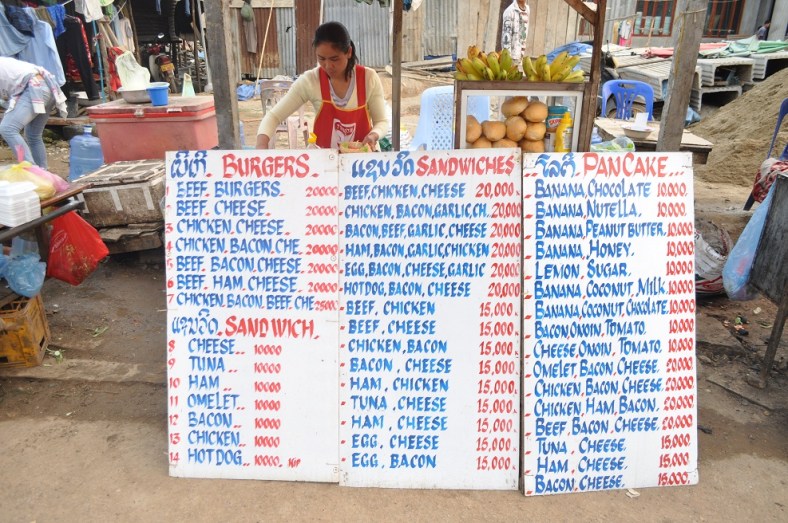 ເບີເກີ. BURGERS.
1 EEEF. BURGERS. 20000
2 BEEF. CHEESE. 20000
3 CHICKEN. CHEESE. 20000
4 CHICKEN. BACON. CHE. 20000
5 BEEF. BACON. CHEESE. 20000
6 BEEF. HAM. CHEESE. 20000
7 CHICKEN. BACON. BEEF. CHE 25000
ແຊນວິດ. SANDWICH.
8 CHEESE.. 10000
9 TUNA.. 10000
10 HAM.. 10000
11 OMELET.. 10000
12 BACON.. 10000
13 CHICKEN.. 10000
14 HOTDOG.. 10000. KIP
ແຊນວິດ SANDWICHES
BEEF, CHICKEN, CHEESE 20,000
CHICKEN, BACON, GARLIC, CH. 20,000
BACON, BEEF, GARLIC, CHEESE 20,000
HAM, BACON, GARLIC, CHICKEN 20,000
EGG, BACON, CHEESE, GARLIC 20,000
HOTDOG, BACON, CHEESE 20,000
BEEF, CHICKEN 15,000
BEEF, CHEESE 15,000
CHICKEN, BACON 15,000
BACON, CHEESE 15,000
HAM, CHICKEN 15,000
TUNA, CHEESE 15,000
HAM, CHEESE 15,000
EGG, CHEESE 15,000
EGG, BACON 15,000
PANCAKE.
BANANA, CHOCOLATE 10.000.
BANANA, NUTELLA. 10.000.
BANANA, PEANUT BUTTER. 10.000
BANANA, HONEY. 10.000
LEMON, SUGAR. 10.000
BANANA, COCONUT, MILK. 10.000
BANANA, COCONUT, CHOCOLATE. 10.000
BACON, ONOIN, TOMATO. 10.000
CHEESE, ONOIN, TOMATO. 10.000
OMELET, BACON, CHEESE. 20.000
CHICKEN, BACON, CHEESE. 20.000
CHICKEN, HAM, BACON. 20.000
BEEF, BACON, CHEESE. 20.000
TUNA, CHEESE. 15.000
HAM, CHEESE. 15.000
BACON, CHEESE. 15.000